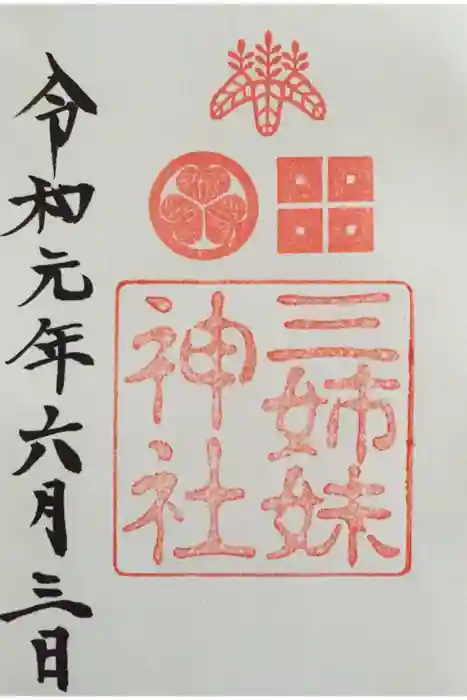 三姉妹
神社
令和元年六月三日